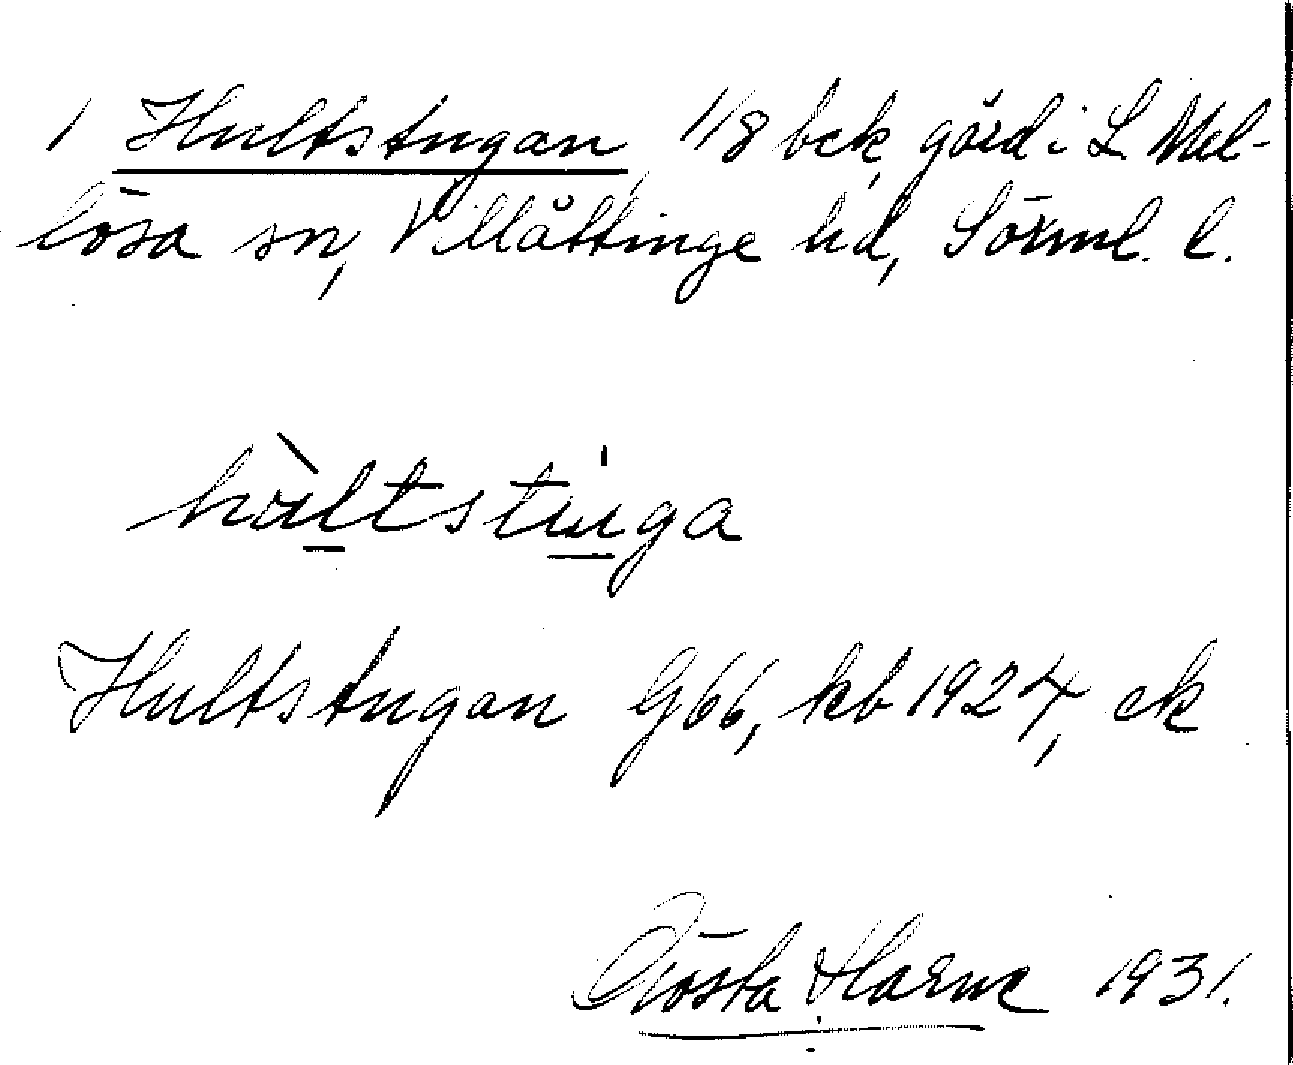 1 Hultstugan, 1/8 bck, gård i L Mel-
lösa sn, Villåttinge hd, Sörml. l.
hùltstuga
Hultstugan G66, kb 1924, ek
Gösta Harne 1931.